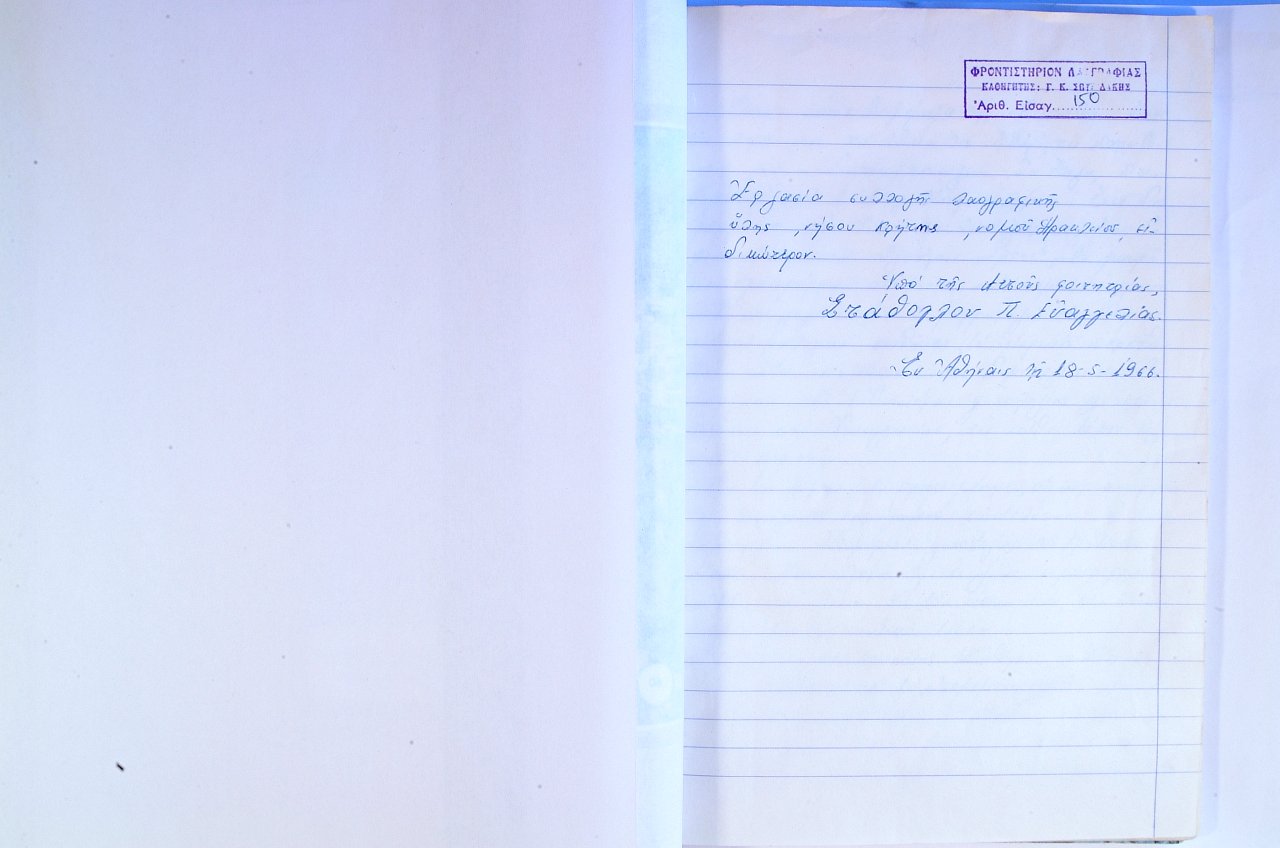 ΦΡΟΝΤΙΣΤΗΡΙΟΝ ΛΑΟΓΡΑΦΙΑΣ
ΚΑΘΗΓΗΤΗΣ: Γ. Κ. ΣΠΥΡΙΔΑΚΗΣ
Ἀριθ. Εἰσαγ. 150
Ἐργασία συλλογῆς λαογραφικῆς
ὕλης, νήσου Κρήτης, νομοῦ Ἡρακλείου, εἰ-
δικώτερον.
Ὑπό τῆς φοιτητρίας,
Στάθογλου Π. Εὐαγγελίας.
Ἐν Ἀθήναις τῇ 18-5-1966.